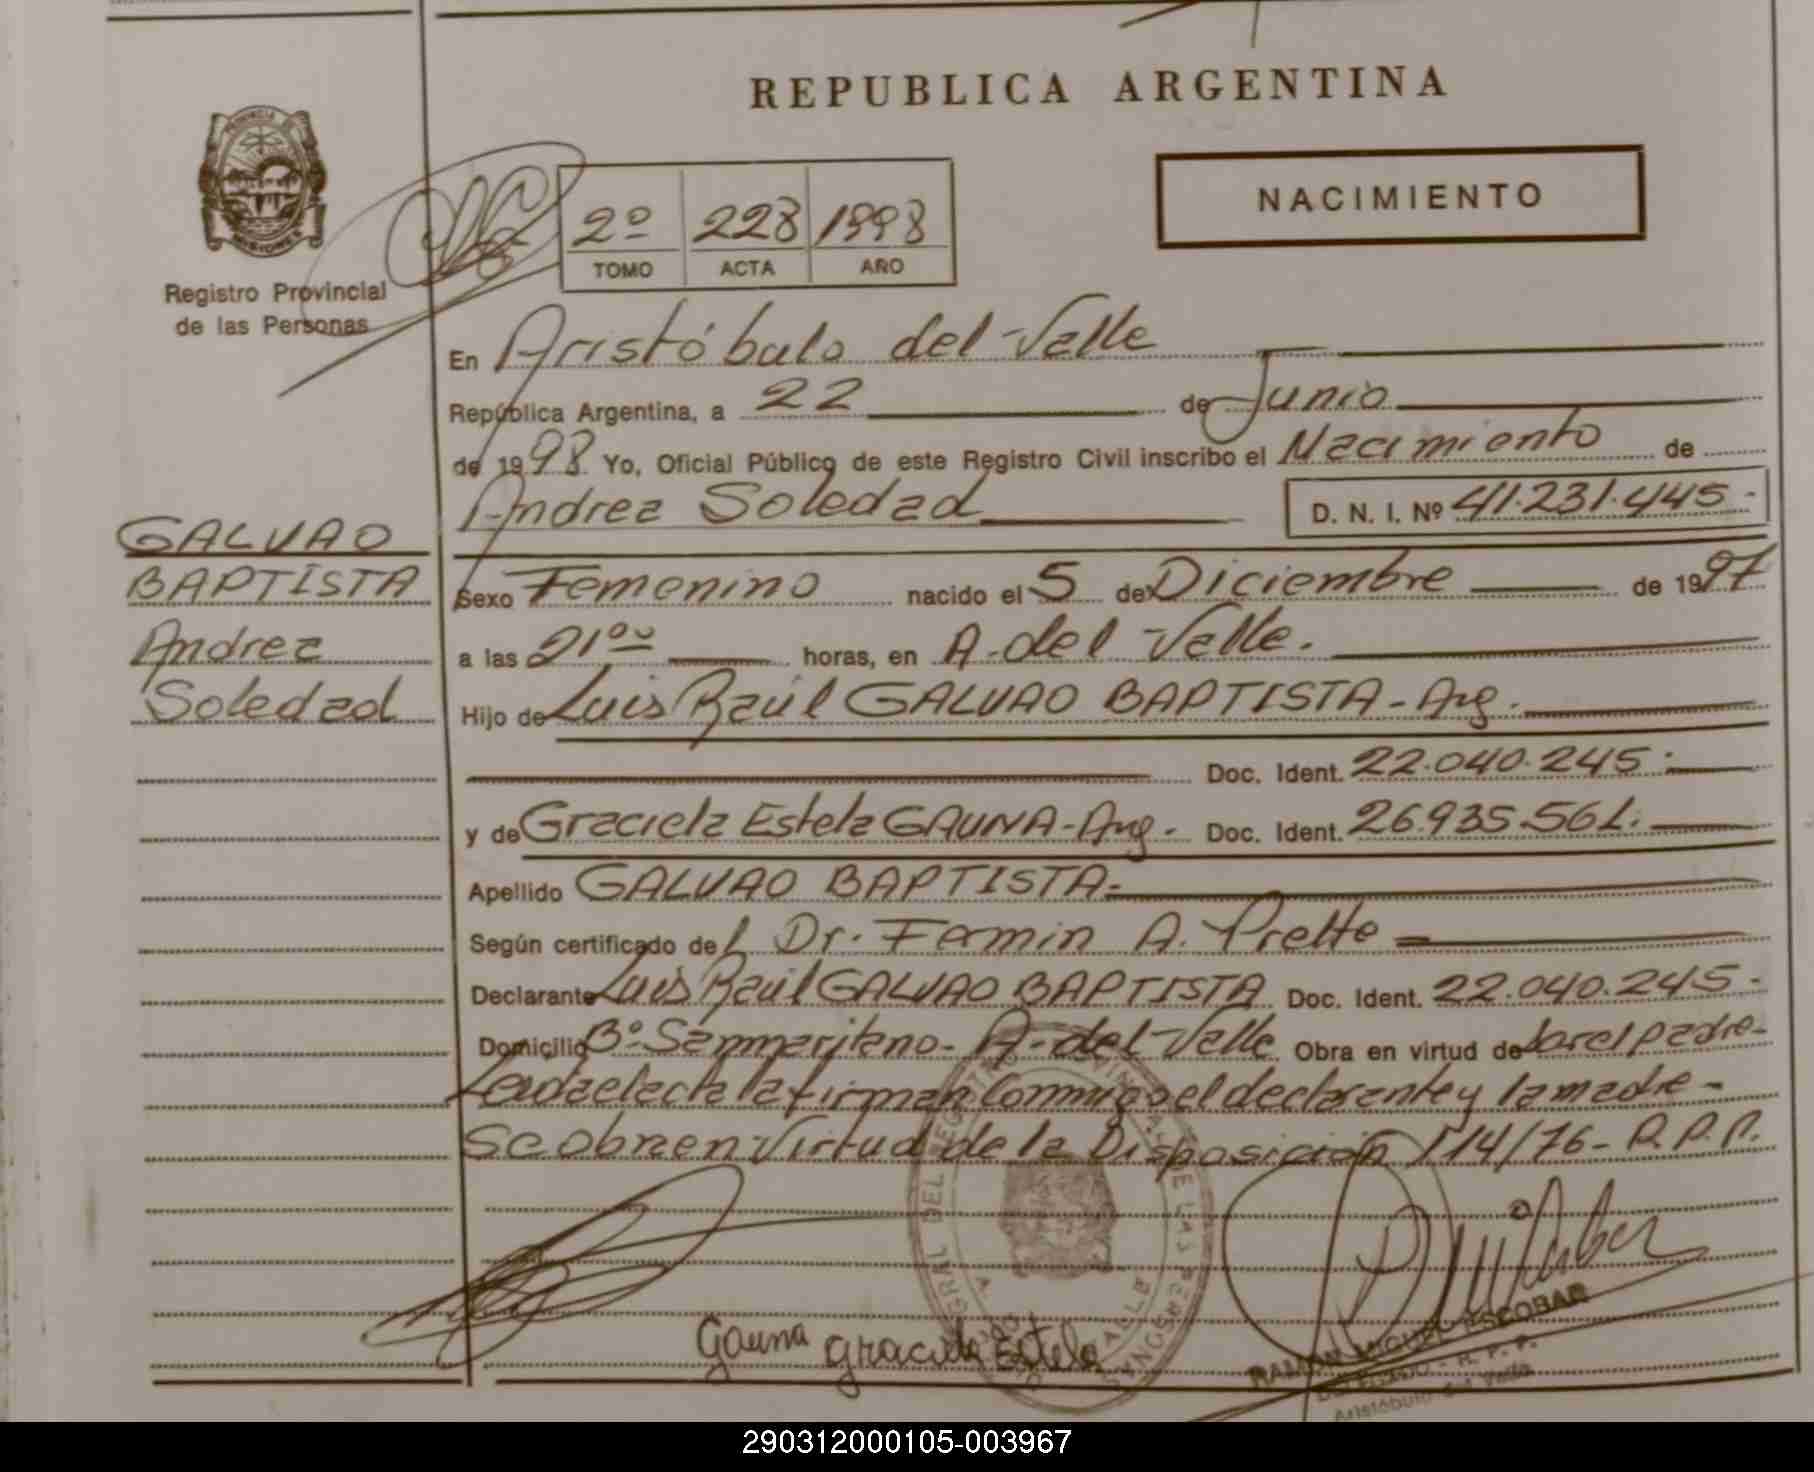 REPUBLICA ARGENTINA
PROVINCIA DE
MISIONES
Registro Provincial
de las Personas
NACIMIENTO
2º 228 1998
TOMO ACTA AÑO
En Aristóbulo del Valle
República Argentina, a 22 de Junio
de 1998 Yo, Oficial Público de este Registro Civil inscribo el Nacimiento de
Andrea Soledad D. N. I. Nº 41.231.445.-
GALVAO
BAPTISTA
Andrea
Soledad
Sexo Femenino nacido el 5 de Diciembre de 1997
a las 21ºº horas, en A. del Valle.
Hijo de Luis Raúl GALVAO BAPTISTA - Arg.
Doc. Ident. 22.040.245.-
y de Graciela Estela GAUNA - Arg. Doc. Ident. 26.935.561.
Apellido GALVAO BAPTISTA.-
Según certificado del Dr. Fermin A. Prette
Declarante Luis Raúl GALVAO BAPTISTA Doc. Ident. 22.040.245-
Domicilio Bº Sammaritano - A. del Valle Obra en virtud de ser el padre-
Leída el acta la firman Conmigo el declarante y la madre-
Se obra en Virtud de la Disposición 114/76 - R.P.P.
Gauna Graciela Estela
RAMON MIGUEL ESCOBAR
DELEGADO - R. P. P.
Aristóbulo del Valle
290312000105-003967